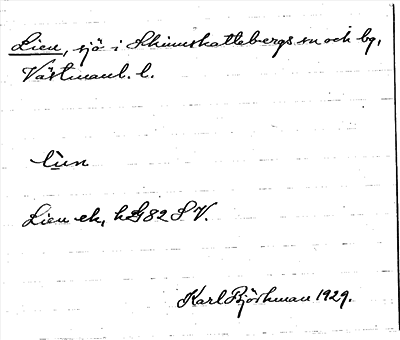 Lien, sjö i Skinnskattebergs sn och bg,
Västmanl. l.
li̱un
Lien ek, hG 82 S V.
Karl Björkman 1929.